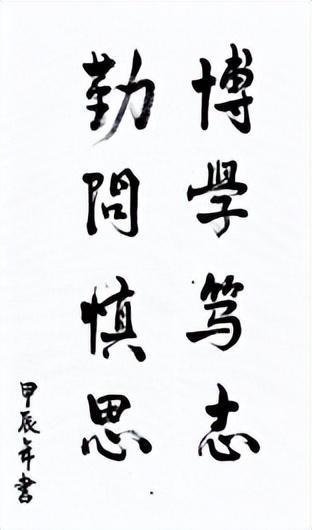 博學笃志
勤問慎思
甲辰年書